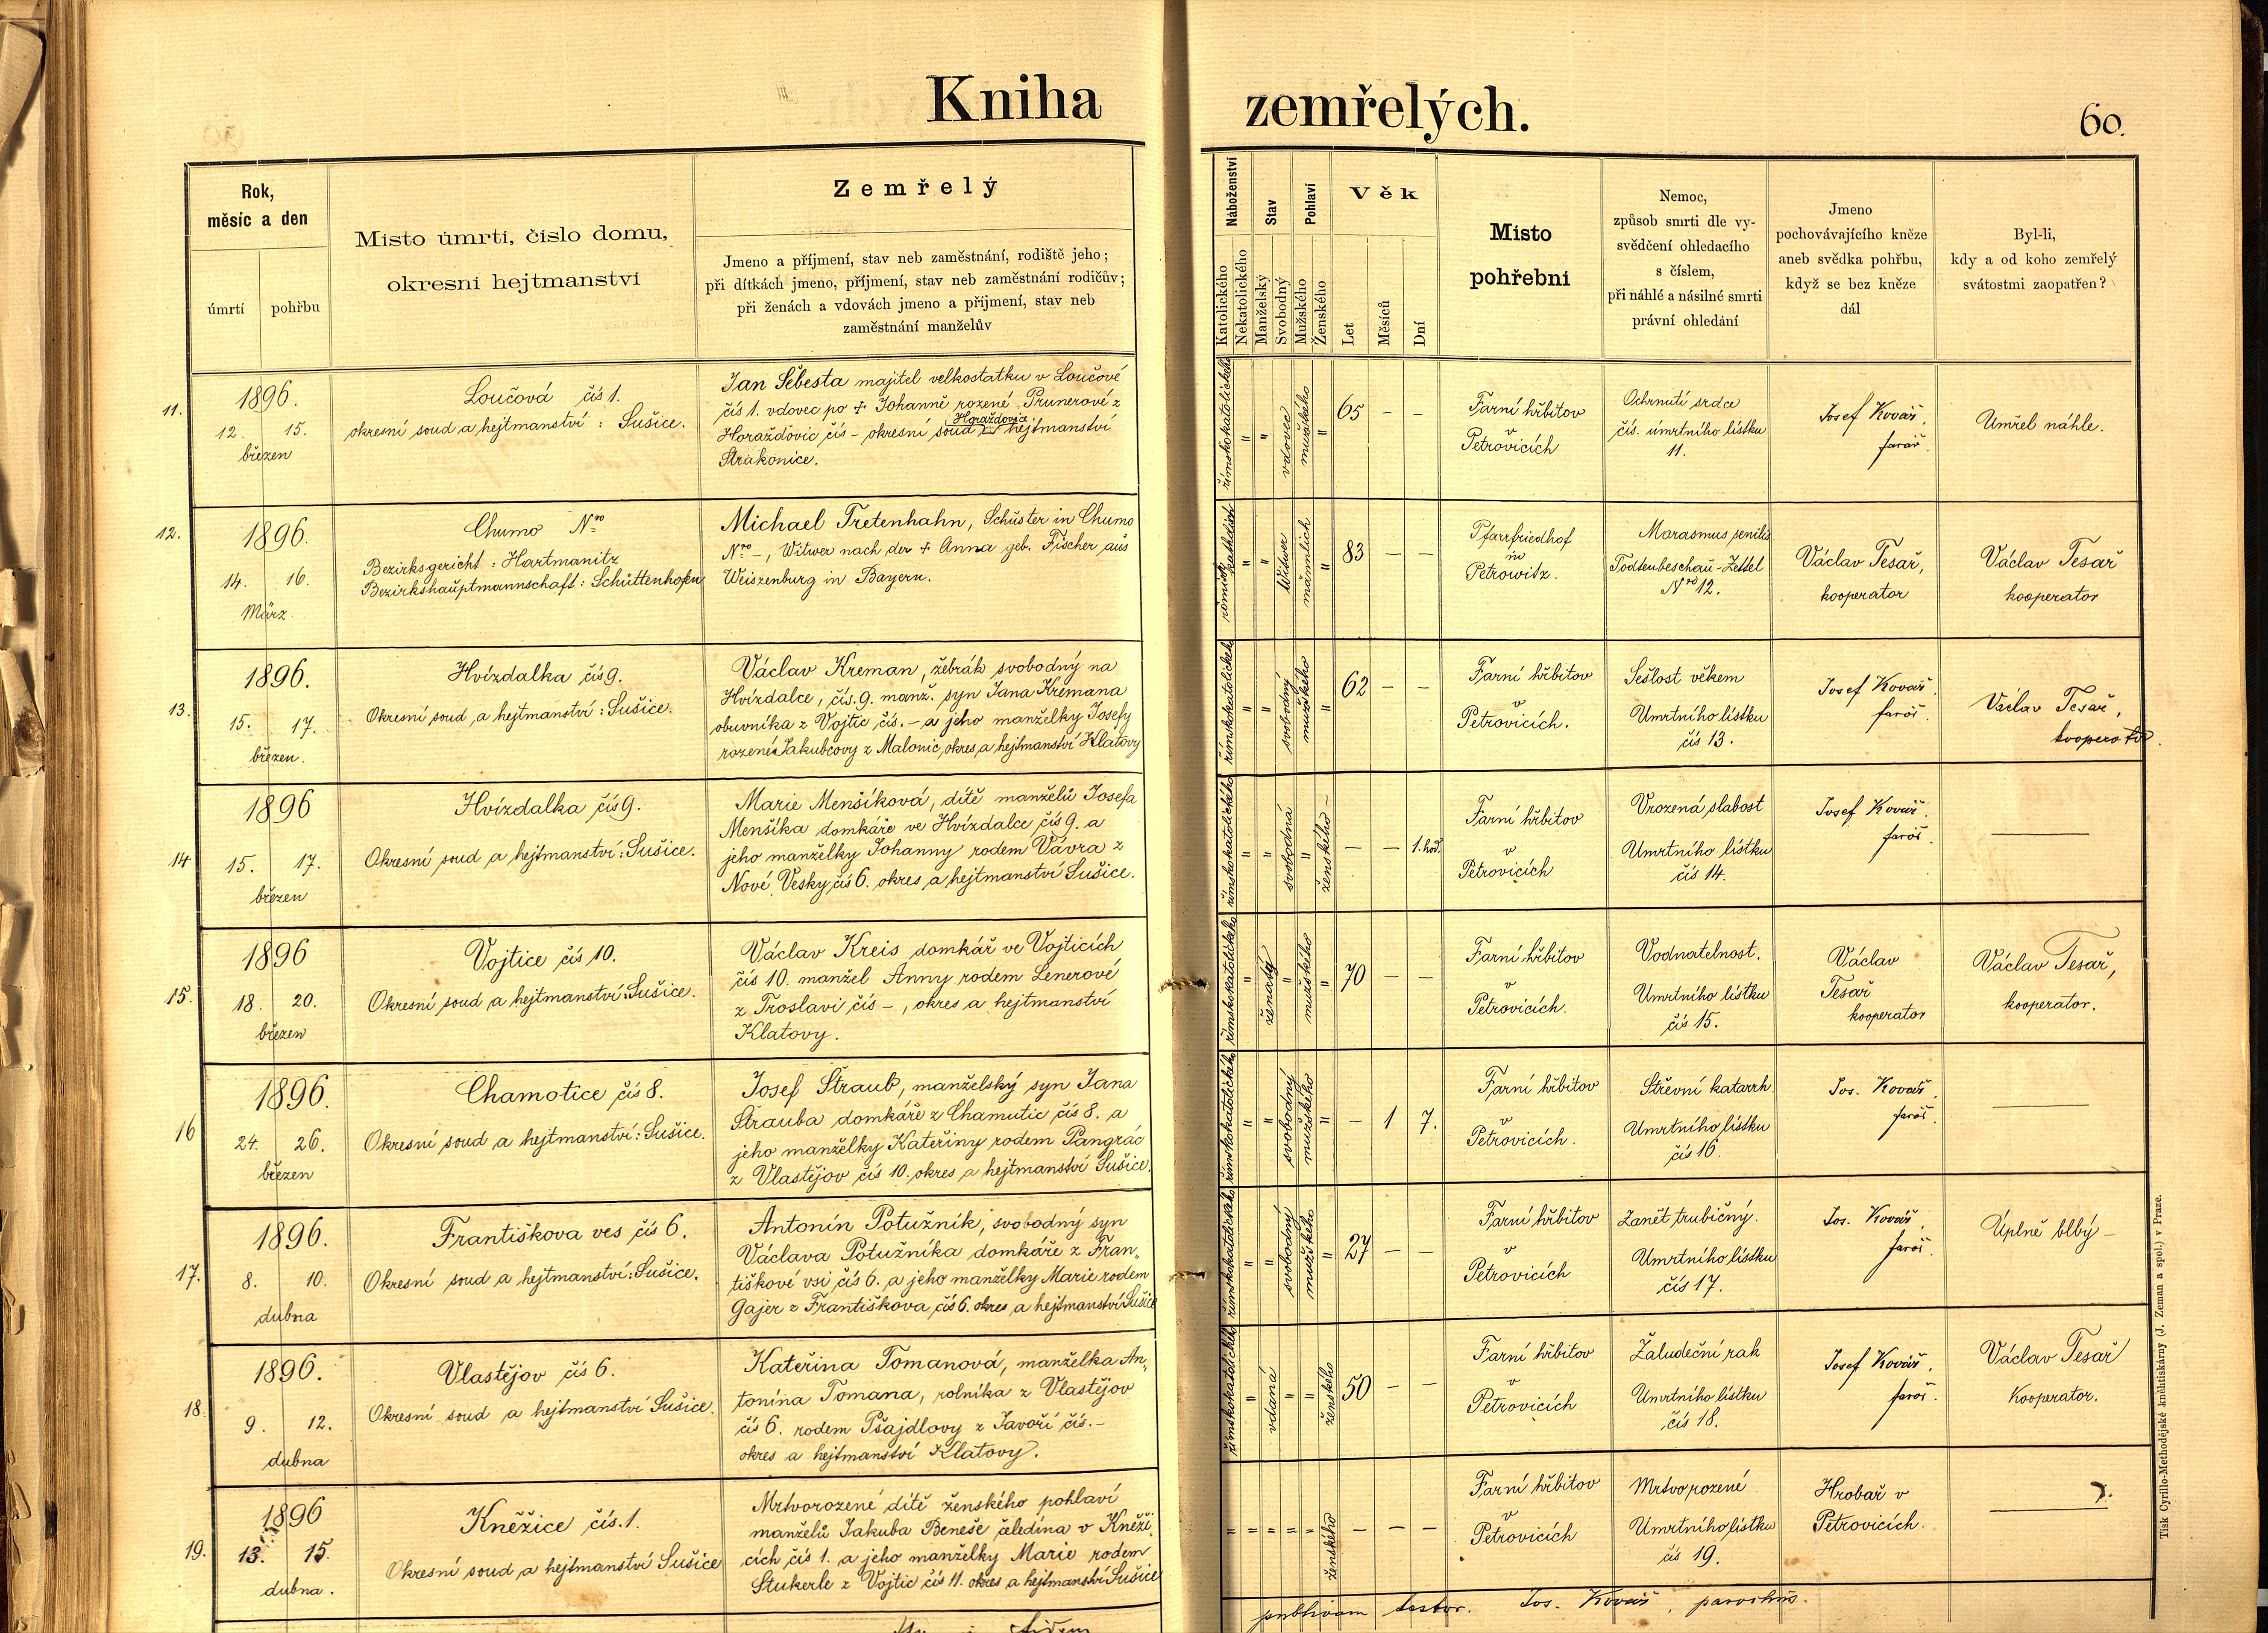 Kniha zemřelých.
60.
Rok,
měsíc a den
úmrtí
pohřbu
Místo úmrtí, číslo domu,
okresní hejtmanství
Zemřelý
Jmeno a příjmení, stav neb zaměstnání, rodiště jeho;
při dítkách jmeno, příjmení, stav neb zaměstnání rodičův;
při ženách a vdovách jmeno a příjmení, stav neb
zaměstnání manželův
Náboženství
Katolického
Nekatolického
Stav
Manželský
Svobodný
Pohlaví
Mužského
Ženského
Věk
Let
Měsíců
Dní
Místo
pohřební
Nemoc,
způsob smrti dle vy-
svědčení ohledacího
s číslem,
při náhlé a násilné smrti
právní ohledání
Jmeno
pochovávajícího kněze
aneb svědka pohřbu,
když se bez kněze
dál
Byl-li,
kdy a od koho zemřelý
svátostmi zaopatřen?
11.
1896.
12. 15.
březen
Loučová čís 1.
okresní soud a hejtmanství: Sušice.
Jan Šebesta majitel velkostatku v Loučové
čís 1. vdovec po + Johanně rozené Prunerové z
Horažďovice
Horažďovic čís – okresní soud hejtmanství
Strakonice.
římskokatolického
"
"
vdovec
mužského
"
65 – –
Farní hřbitov
v
Petrovicích
Ochrnutí srdce
čís. úmrtního lístku
11.
Josef Kovář,
farář.
Umřel náhle.
12.
1896.
14. 16.
März
Chumo Nro
Bezirksgericht: Hartmanitz
Bezirkshauptmannschaft: Schüttenhofen
Michael Tretenhahn, Schuster in Chumo
Nro –, Witwer nach der + Anna geb. Fischer aus
Weiszenburg in Bayern.
römisch katholisch
"
"
Witwer
männlich
"
83 – –
Pfarrfriedhof
in
Petrowitz.
Marasmus senilis
Todtenbeschau-Zettel
Nro 12.
Václav Tesař,
kooperator
Václav Tesař
kooperator
13.
1896.
15. 17.
březen.
Hvízdalka čís 9.
Okresní soud a hejtmanství: Sušice.
Václav Kreman, žebrák svobodný na
Hvízdalce, čís. 9. manž. syn Jana Kremana
obuvníka z Vojtic čís. – a jeho manželky Josefy
rozené Jakubcovy z Malonic, okres a hejtmanství Klatovy
římskokatolického
"
"
svobodný
mužského
"
62 – –
Farní hřbitov
v
Petrovicích.
Sešlost věkem
Úmrtního lístku
čís 13.
Josef Kovář.
farář.
Václav Tesař,
kooperator.
14
1896
15. 17.
březen
Hvízdalka čís 9.
Okresní soud a hejtmanství: Sušice.
Marie Menšíková, dítě manželů Josefa
Menšíka domkáře ve Hvízdalce čís 9. a
jeho manželky Johanny rodem Vávra z
Nové Vesky čís 6. okres a hejtmanství Sušice.
římskokatolického
"
"
svobodná
"
ženského –
– – 1. hod.
Farní hřbitov
v
Petrovicích
Vrozená slabost
Úmrtního lístku
čís 14.
Josef Kovář.
farář.
15.
1896
18. 20.
březen
Vojtice čís 10.
Okresní soud a hejtmanství: Sušice.
Václav Kreis domkář ve Vojticích
čís 10. manžel Anny rodem Lenerové
z Troslavi čís –, okres a hejtmanství
Klatovy.
římskokatolického
"
ženatý
"
mužského
"
70 – –
Farní hřbitov
v
Petrovicích.
Vodnatelnost.
Úmrtního lístku
čís 15.
Václav
Tesař
kooperator
Václav Tesař,
kooperator.
16
1896.
24. 26.
březen
Chamotice čís 8.
Okresní soud a hejtmanství: Sušice.
Josef Straub, manželský syn Jana
Strauba domkáře z Chamutic čís 8. a
jeho manželky Kateřiny rodem Pangrác
z Vlastějov čís 10. okres a hejtmanství Sušice.
římskokatolického
"
"
svobodný
mužského
"
– 1 7.
Farní hřbitov
v
Petrovicích.
Střevní katarrh
Úmrtního lístku
čís 16.
Jos. Kovář.
farář.
17.
1896.
8. 10.
dubna
Františkova ves čís 6.
Okresní soud a hejtmanství: Sušice.
Antonín Potužník, svobodný syn
Václava Potužníka domkáře z Fran„
tiškové vsi čís 6. a jeho manželky Marie rodem
Gajer z Františkova čís 6. okres a hejtmanství Sušice
římskokatolického
"
"
svobodný
mužského
"
27 – –
Farní hřbitov
v
Petrovicích
Zanět trubičný.
Úmrtního lístku
čís 17.
Jos. Kovář,
farář.
Úplně blbý –
18.
1896.
9. 12.
dubna
Vlastějov čís 6.
Okresní soud a hejtmanství Sušice.
Kateřina Tomanová, manželka An„
tonína Tomana, rolníka z Vlastějov
čís 6. rodem Pšajdlovy z Javoří čís. –
okres a hejtmanství Klatovy.
římskokatolického
"
vdaná
"
"
ženského
50 – –
Farní hřbitov
v
Petrovicích
Žaludeční rak
Úmrtního lístku
čís 18.
Josef Kovář,
farář.
Václav Tesař
Kooperator.
19.
1896
13. 15.
dubna.
Kněžice čís. 1.
Okresní soud a hejtmanství Sušice
Mrtvorozené dítě ženského pohlaví
manželů Jakuba Beneše čeledína v Kněži„
cích čís 1. a jeho manželky Marie rodem
Stukerle z Vojtic čís 11. okres a hejtmanství Sušice
"
"
"
"
"
ženského
– – –
Farní hřbitov
v
Petrovicích
Mrtvorozené
Úmrtního lístku
čís 19.
Hrobař v
Petrovicích.
testor. Jos. Kovář, parochus.
Tisk Cyrillo-Methodějské kněhtiskárny (J. Zeman a spol.) v Praze.